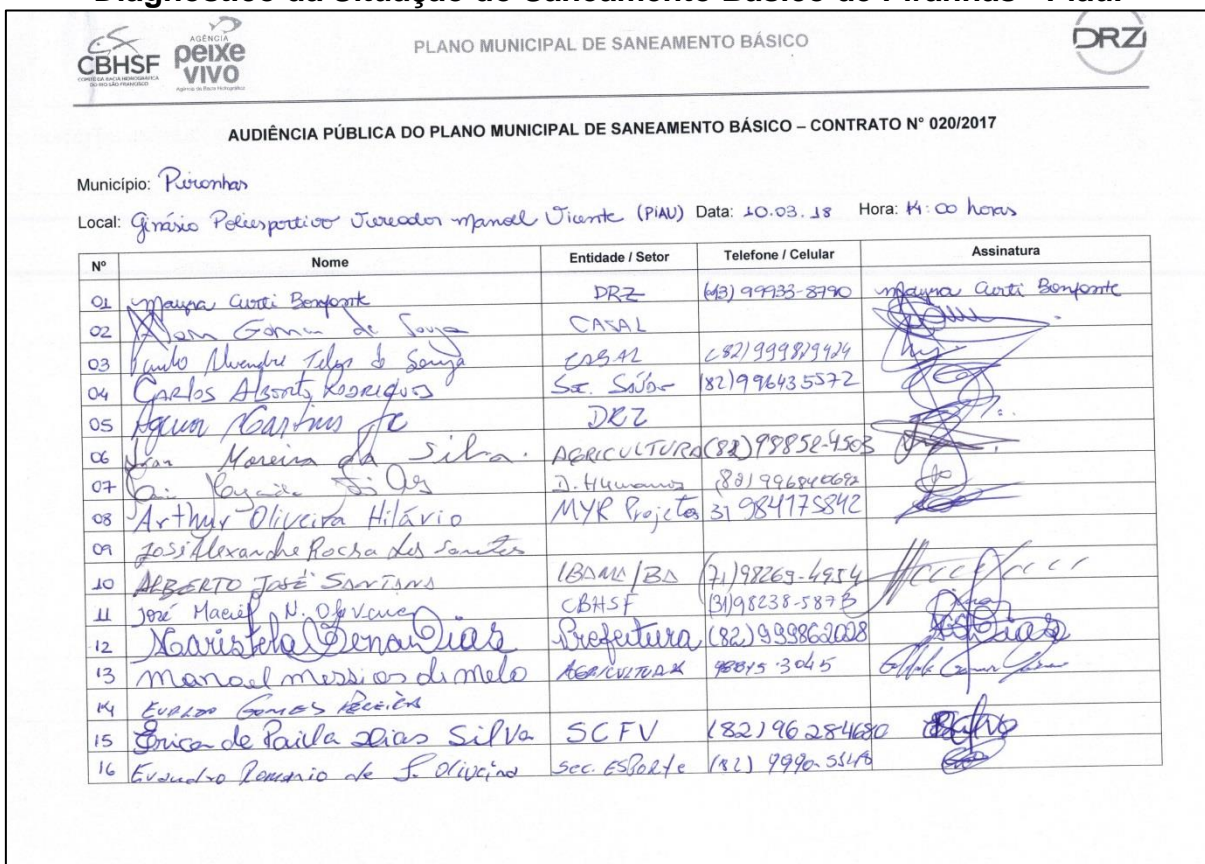 Diagnóstico da Situação do Saneamento Básico de Piranhas - Piau.
CBHSF
COMITÊ DA BACIA HIDROGRÁFICA
DO RIO SÃO FRANCISCO
AGÊNCIA
peixe
vivo
Agência de Bacia Hidrográfica
PLANO MUNICIPAL DE SANEAMENTO BÁSICO
DRZ
AUDIÊNCIA PÚBLICA DO PLANO MUNICIPAL DE SANEAMENTO BÁSICO – CONTRATO N° 020/2017
Município: Piranhas
Local: Ginásio Poliesportivo Vereador Manoel Vicente (PIAU) Data: 10.03.18 Hora: 14:00 horas
Nº Nome Entidade / Setor Telefone / Celular Assinatura
01 Mayra Curti Bonfante DRZ (43) 99933-8790 Mayra Curti Bonfante
02 Gomes de Souza CASAL
03 Telos de Souza CASAL (82) 999829424
04 CARLOS Alberto Rodrigues Sec. Saúde (82) 996435572
05 Martins DRZ
06 Moreira da Silva. AGRICULTURA (82) 98852-4503
07 D. Humanos
08 Arthur Oliveira Hilário MYR Projetos 31 984175842
09 José Alexandre Rocha dos Santos
10 ALBERTO JOSÉ SANTANA IBAMA/BA (71) 98269-4954
11 José Maciel N. Oliveira CBHSF (31) 98238-5873
12 Maristela Dias Prefeitura (82) 999862028
13 manoel messias de melo AGRICULTURA 98815-3045
14 EVALDO GOMES PEREIRA
15 Érica de Paula Dias Silva SCFV (82) 96284680
16 Evandro Romario de S. Oliveira Sec. ESPORTE